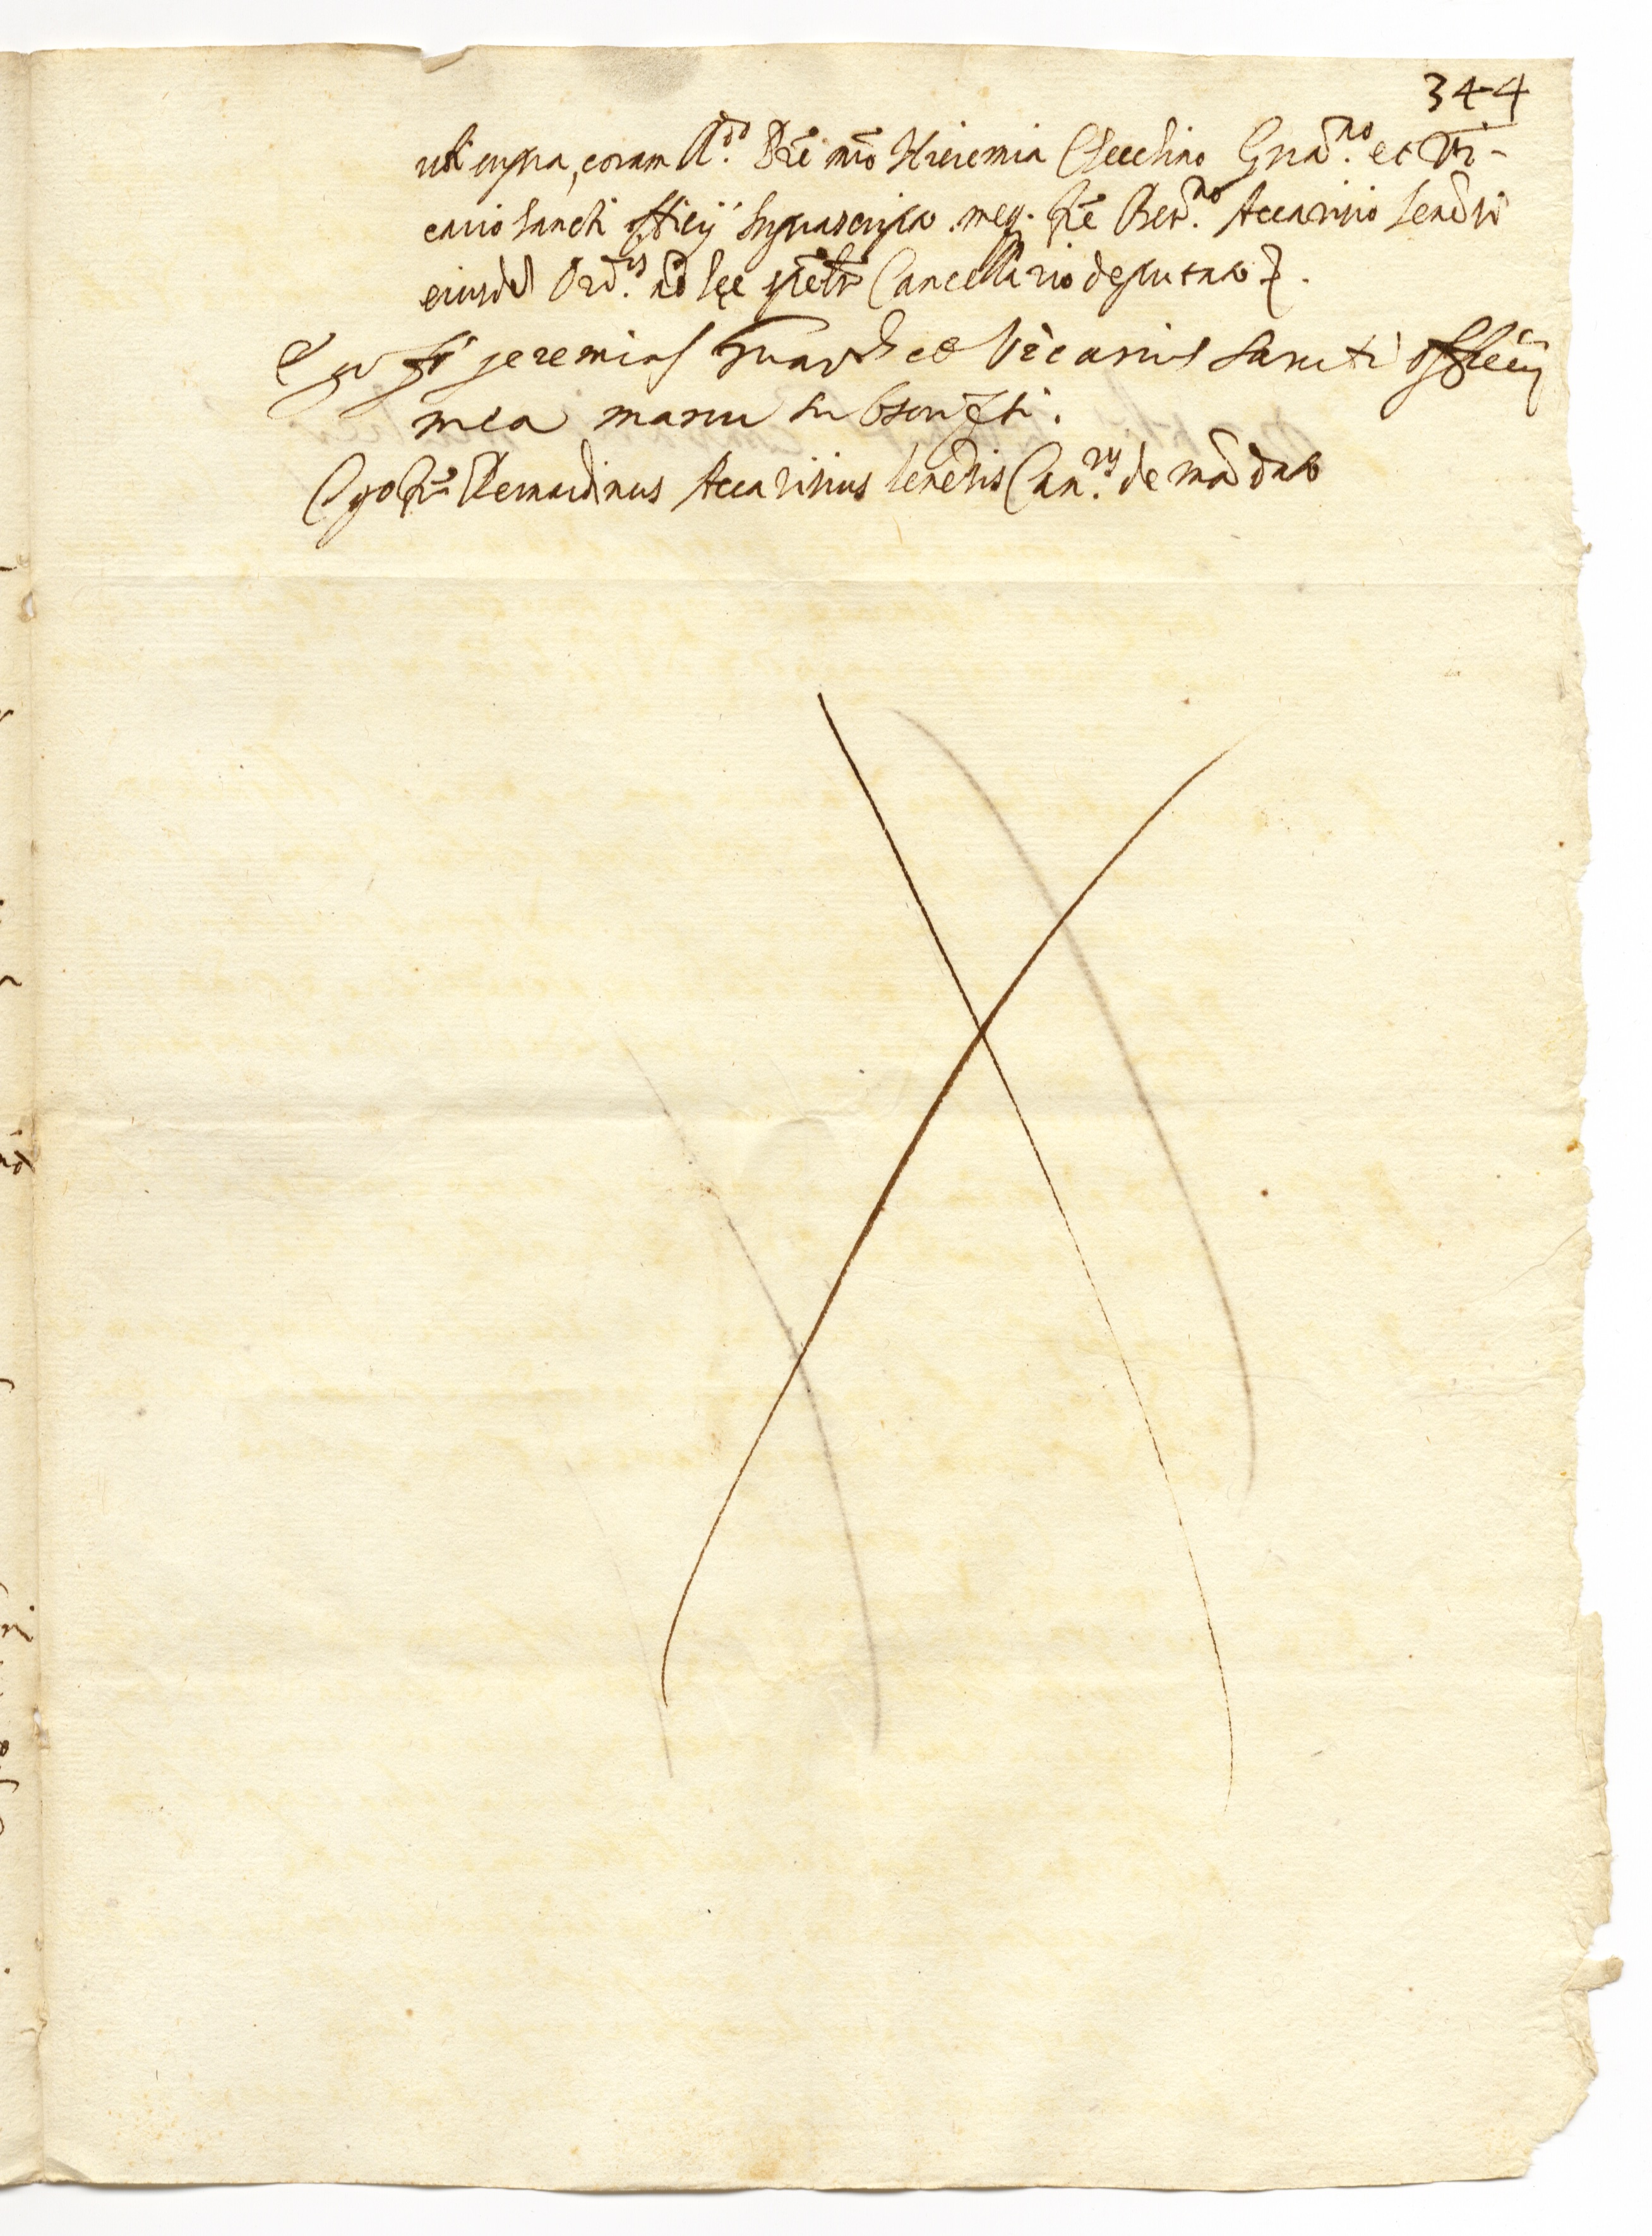 344
ubi supra, coram A.do Pre mro Hieremia Checchino Gna.no et Vi-
cario Sancti Officij suprascripto meq. fre Ber.no Accarisio Sendri
eiusdẽ Ord.is Cancellario deputato
Ego fr Jeremias Guard et Vicarius Sancti Officij
mea manu subscripsi.
Ego Fr Bernardinus Accarisius Can.rus de mãdato